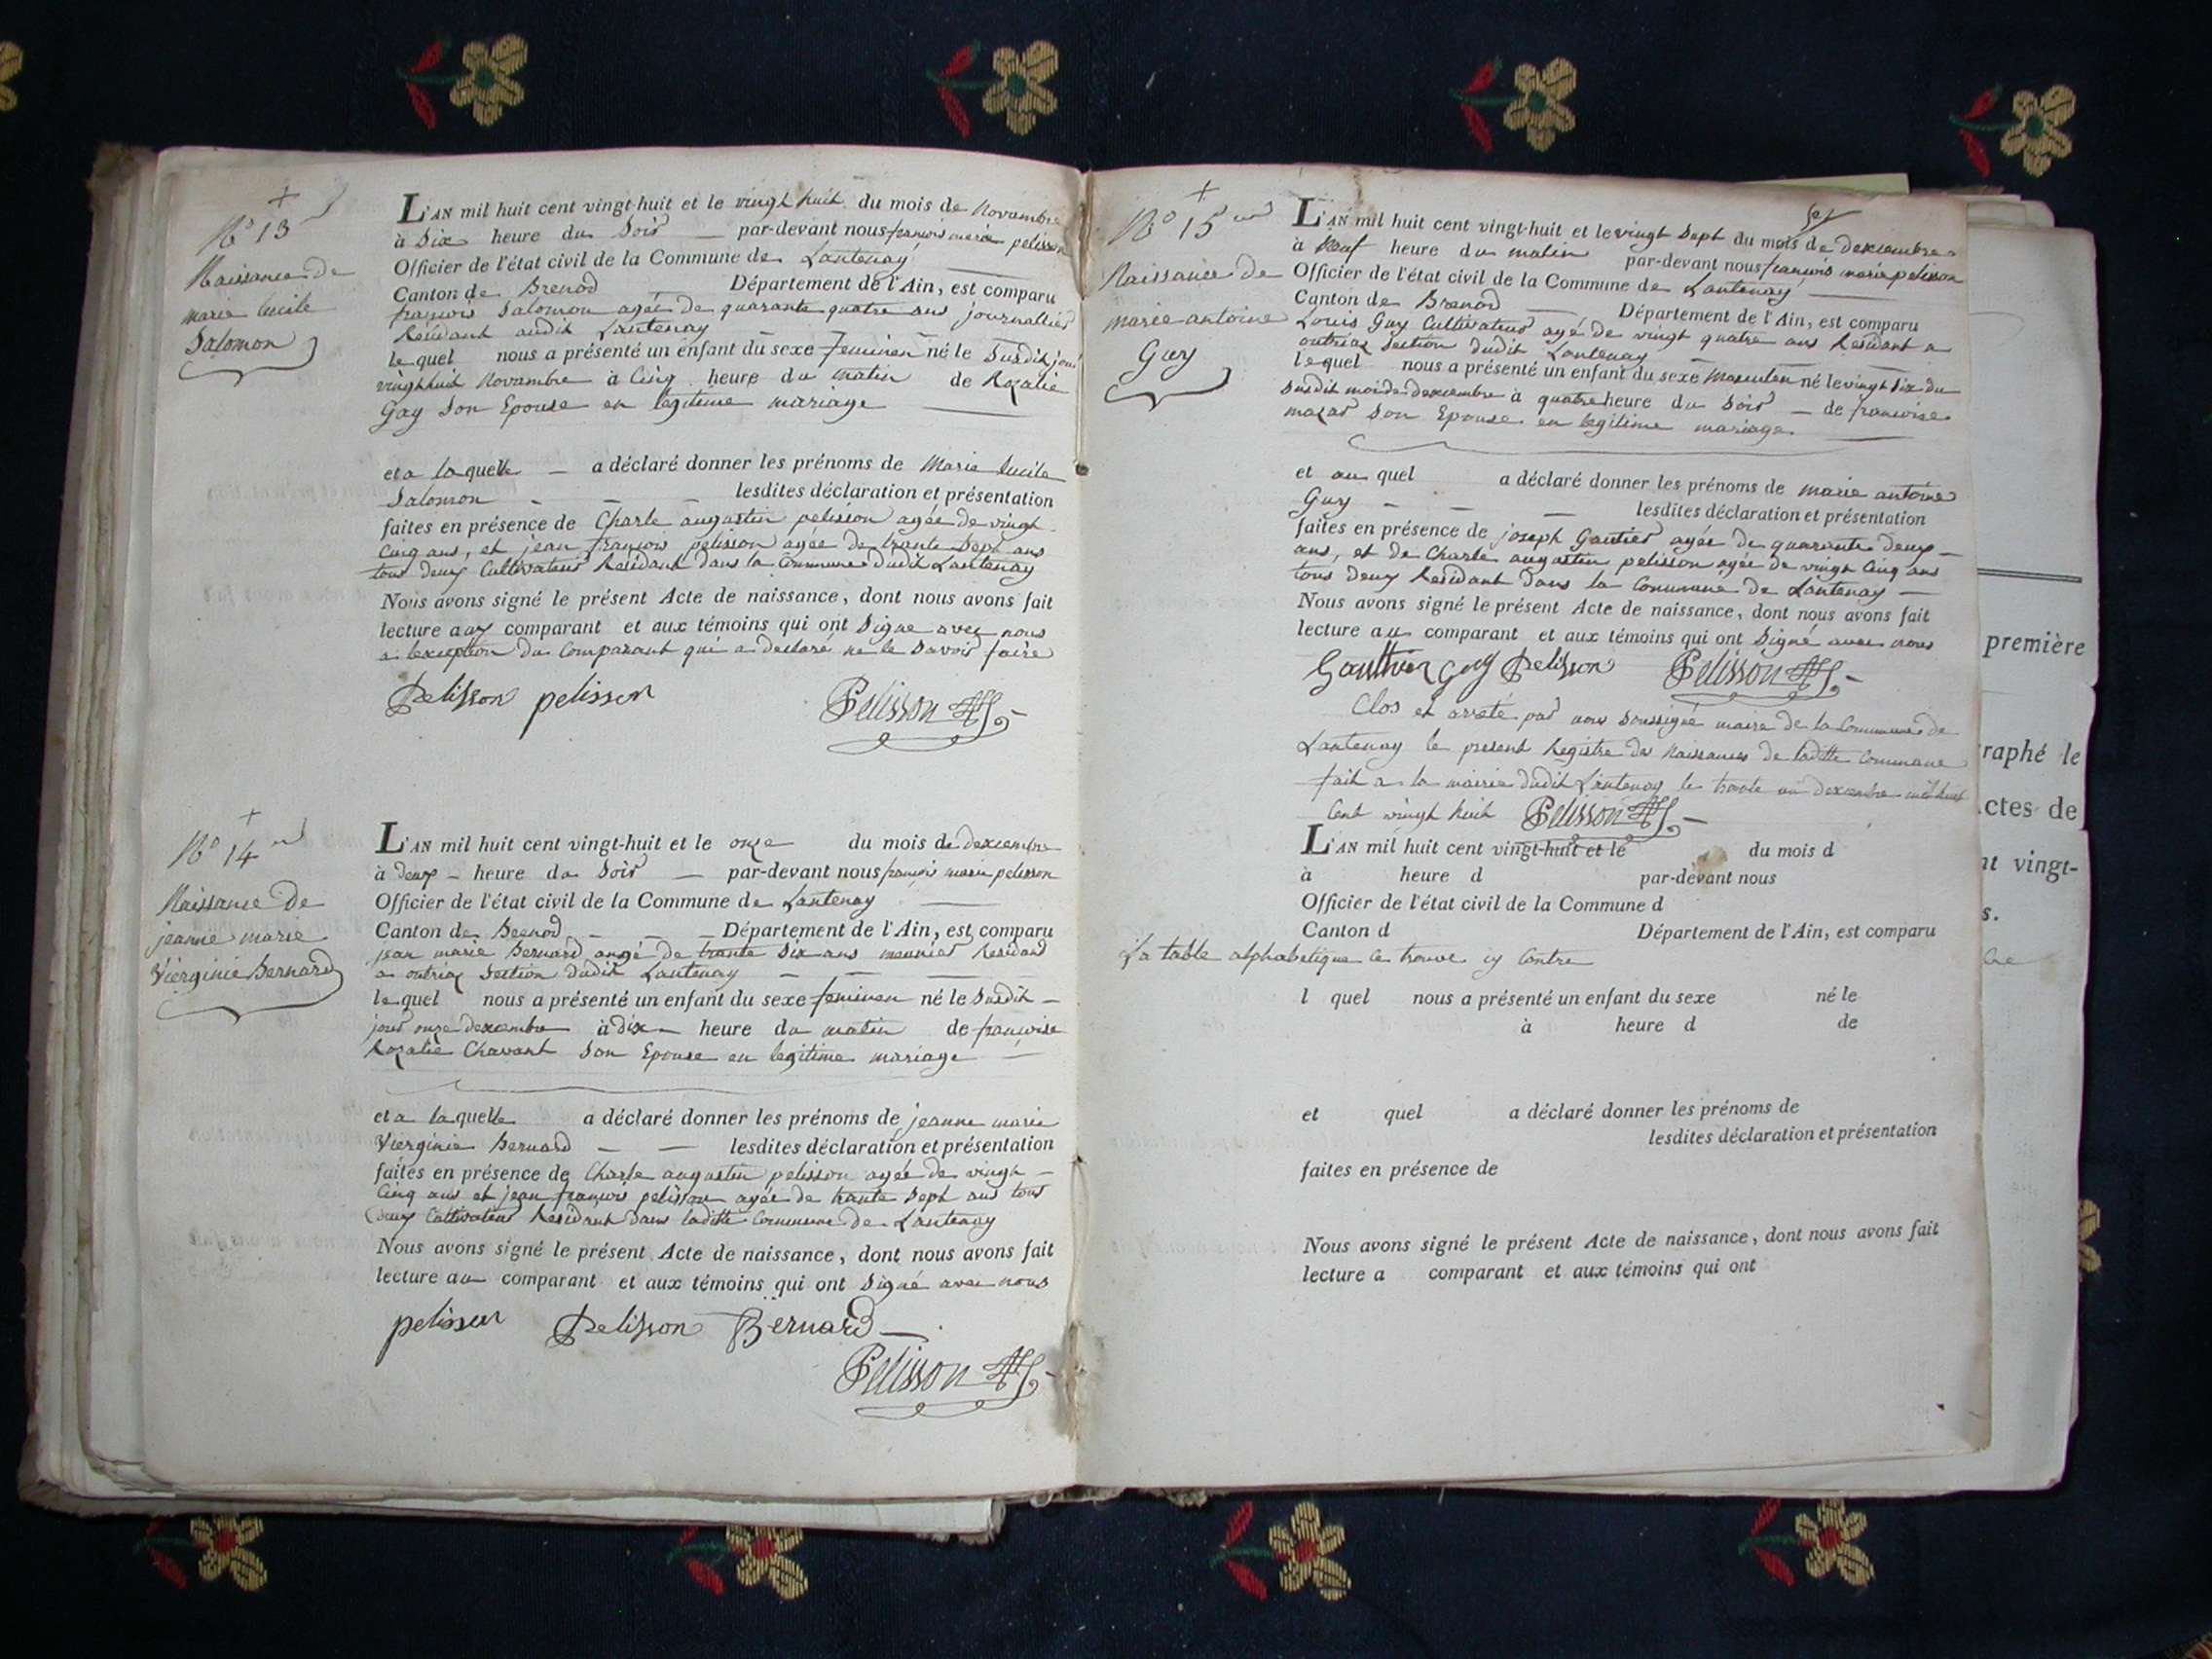 +
N° 13
Naissance de
marie lucile
Salomon
L'AN mil huit cent vingt-huit et le vingt huit du mois de Novambre
à Six heure du Soir — par-devant nous francois marie pelisson
Officier de l'état civil de la Commune de Lantenay
Canton de Brenod Département de l'Ain, est comparu
francois Salomon agée de quarante quatre ans journallier
Residant audit Lantenay
lequel nous a présenté un enfant du sexe feminen né le Susdit jour
vingt huit Novambre à Cinq heure du matin de Rozalie
Gay Son Epouse en legitime mariage
et a laquelle — a déclaré donner les prénoms de Marie lucile
Salomon — — — lesdites déclaration et présentation
faites en présence de Charle augustin pelisson agée de vingt
Cinq ans, et jean francois pelisson agée de trante Sept ans
tous deux Cultivateur Residant dans la Commune dudit Lantenay
Nous avons signé le présent Acte de naissance, dont nous avons fait
lecture aux comparant et aux témoins qui ont Signe avec nous
a lexception du Comparant qui a declaré ne le Savoir faire
Pelisson pelisson Pelisson
+
N° 14
Naissance De
jeanne marie
Vierginie Bernard
L'AN mil huit cent vingt-huit et le onze du mois de dexcembre
à deux — heure du Soir — par-devant nous francois marie pelisson
Officier de l'état civil de la Commune de Lantenay
Canton de Brenod — — Département de l'Ain, est comparu
jean marie Bernard angé de trante Six ans meunier Residant
a outriaz Section dudit Lantenay — — —
lequel nous a présenté un enfant du sexe feminen né le Susdit —
jour onze dexcembre à dix heure du matin de francoise
Rozalie Chavant Son Epouse en legitime mariage —
et a laquelle a déclaré donner les prénoms de jeanne marie
Vierginie Bernard — — lesdites déclaration et présentation
faites en présence de Charle augustin pelisson agée de vingt —
Cinq ans et jean francois pelisson agée de trante Sept ans tous
deux Cultivateur Residant dans laditte Commune de Lantenay
Nous avons signé le présent Acte de naissance, dont nous avons fait
lecture au comparant et aux témoins qui ont Signé avec nous
pelisson Pelisson Bernard
Pelisson
+
N° 15
Naissance de
marie antoine
Guy
L'AN mil huit cent vingt-huit et le vingt Sept du mois de dexcembre
à Neuf heure du matin par-devant nous francois marie pelisson
Officier de l'état civil de la Commune de Lantenay
Canton de Brenod — Département de l'Ain, est comparu
Louis Guy Cultivateur agé de vingt quatre ans Residant a
outriaz Section dudit Lantenay
lequel nous a présenté un enfant du sexe Masculen né le vingt Six du
Susdit mois de dexcembre à quatre heure du Soir — de francoise
mazar Son Epouse en legitime mariage
et au quel a déclaré donner les prénoms de marie antoine
Guy — — — lesdites déclaration et présentation
faites en présence de joseph Gautier agée de quarante deux —
ans, et de Charle augustin pelisson agée de vingt Cinq ans
tous deux Residant dans la Commune de Lantenay —
Nous avons signé le présent Acte de naissance, dont nous avons fait
lecture au comparant et aux témoins qui ont Signé avec nous
Gautthier Guy Pelisson Pelisson
Clos et arreté par nous Soussigné maire de la Commune de
Lantenay le present Registre des Naissances de laditte Commune
fait a la mairie dudit Lantenay le trante un dexcembre mil huit
Cent vingt huit Pelisson
L'AN mil huit cent vingt-huit et le du mois d
à heure d par-devant nous
Officier de l'état civil de la Commune d
Canton d Département de l'Ain, est comparu
La table alphabetique ce trouve cy Contre
l quel nous a présenté un enfant du sexe né le
à heure d de
et quel a déclaré donner les prénoms de
lesdites déclaration et présentation
faites en présence de
Nous avons signé le présent Acte de naissance, dont nous avons fait
lecture a comparant et aux témoins qui ont
première
raphé le
ctes de
nt vingt-
s.